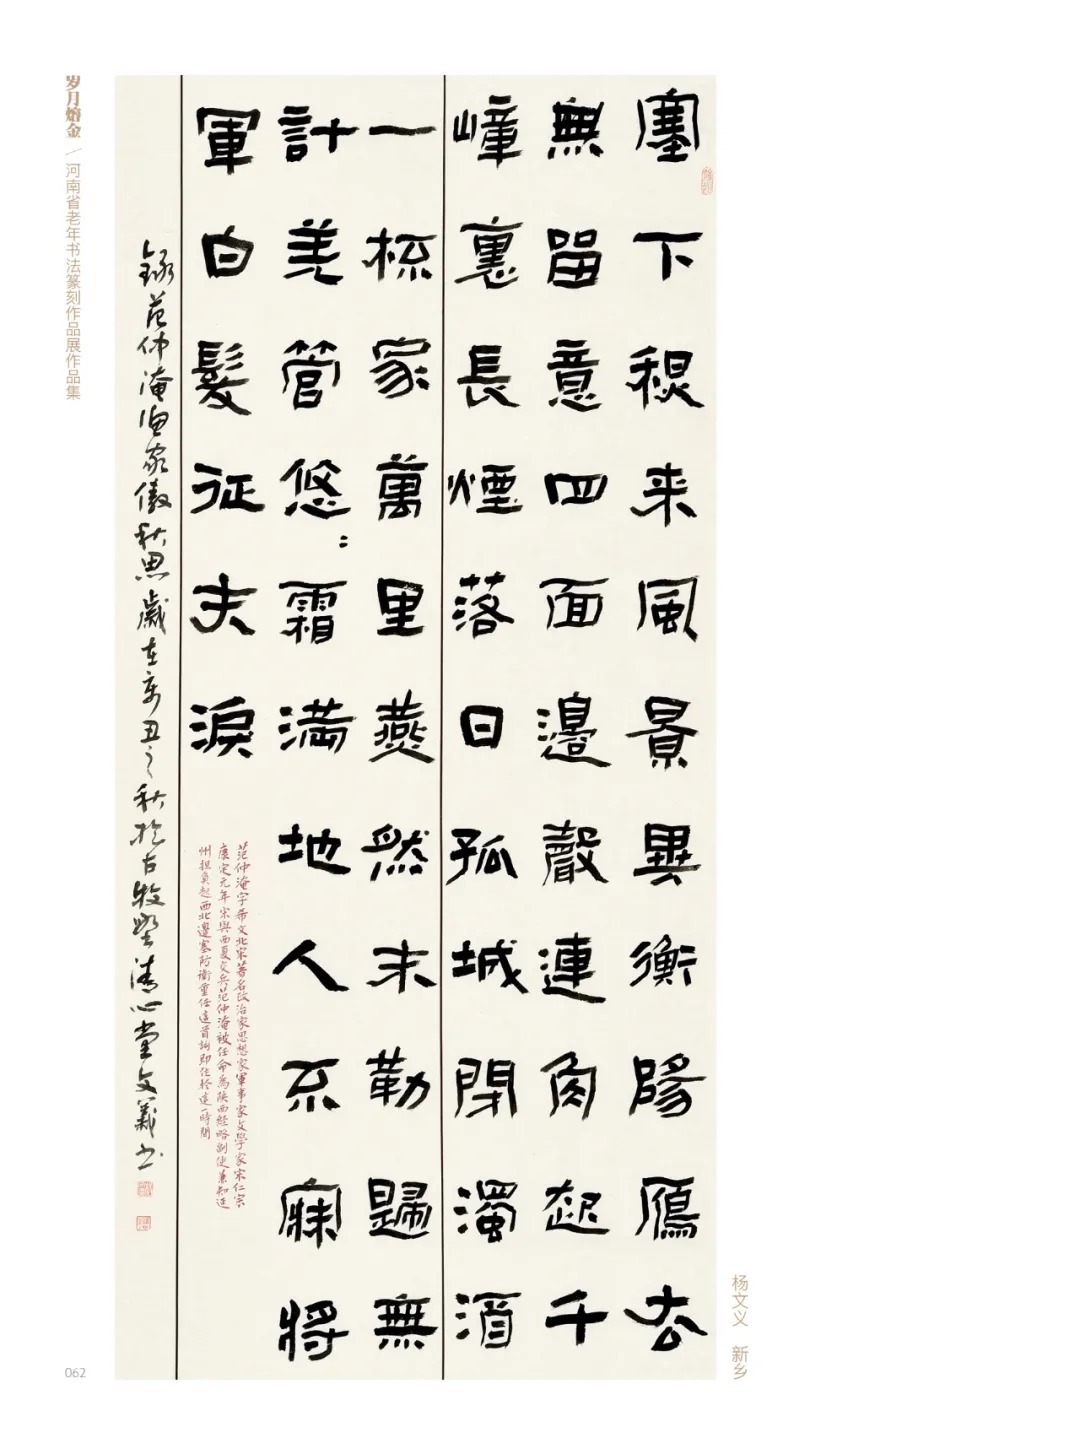 塞下秋来風景異衡陽鴈去
無留意四面邊聲連角起千
嶂裏長煙落日孤城閉濁酒
一杯家萬里燕然未勒歸無
計羌管悠：霜满地人不寐將
軍白髮征夫淚
范仲淹字希文北宋著名政治家思想家軍事家文學家宋仁宗
康定元年宋與西夏交兵范仲淹被任命為陝西經略副使兼知延
州担負起西北邊塞防衛重任這首詞即作於這一時間
録范仲淹漁家傲秋思歲在辛丑之秋於古牧野清心堂文義書
杨文义 新乡
岁月熔金／河南省老年书法篆刻作品展作品集
062